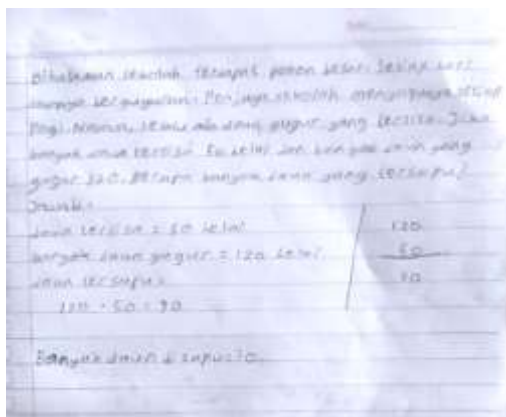 Dihalaman sekolah terdapat pohon besar. Setiap hari
daunnya berguguran. Penjaga sekolah menyapunya setiap
pagi. Namun, selalu ada daun gugur yang tersisa. Jika
banyak daun tersisa 50 helai dan banyak daun yang
gugur 120. Berapa banyak daun yang tersapu?
Jawab:
daun tersisa = 50 helai
banyak daun gugur = 120 helai
daun tersapu =
120 - 50 = 70
120
50
70
Banyak daun